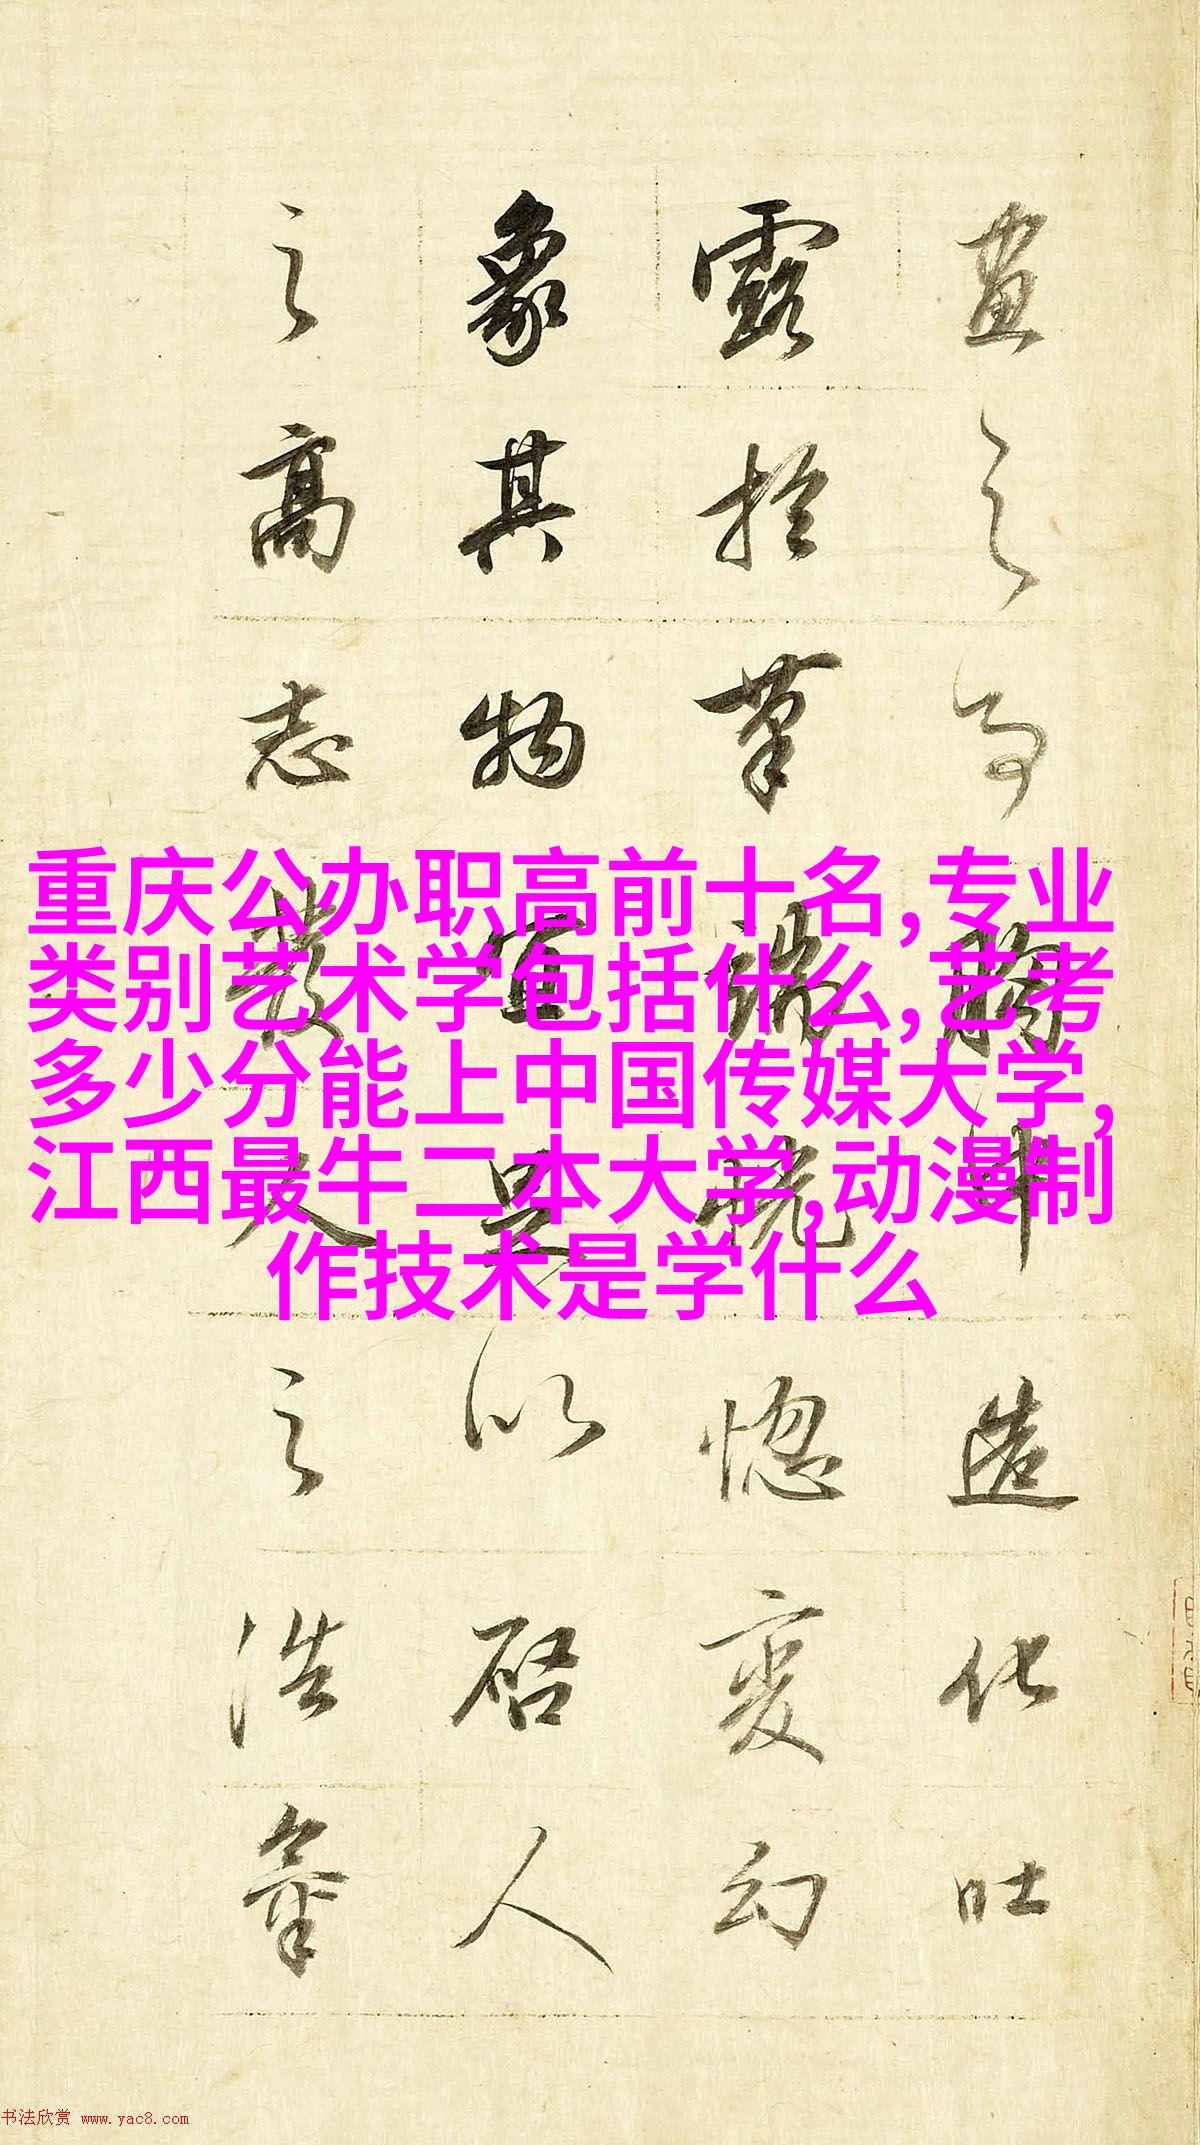 畫之為
造化吐
露於筆端恍
惚變幻
象其物宜
以啓人
之高志發
之浩氣
重庆公办职高前十名,专业
类别艺术学包括什么,艺考
多少分能上中国传媒大学,
江西最牛二本大学,动漫制
作技术是学什么
书法欣赏 www.yac8.com